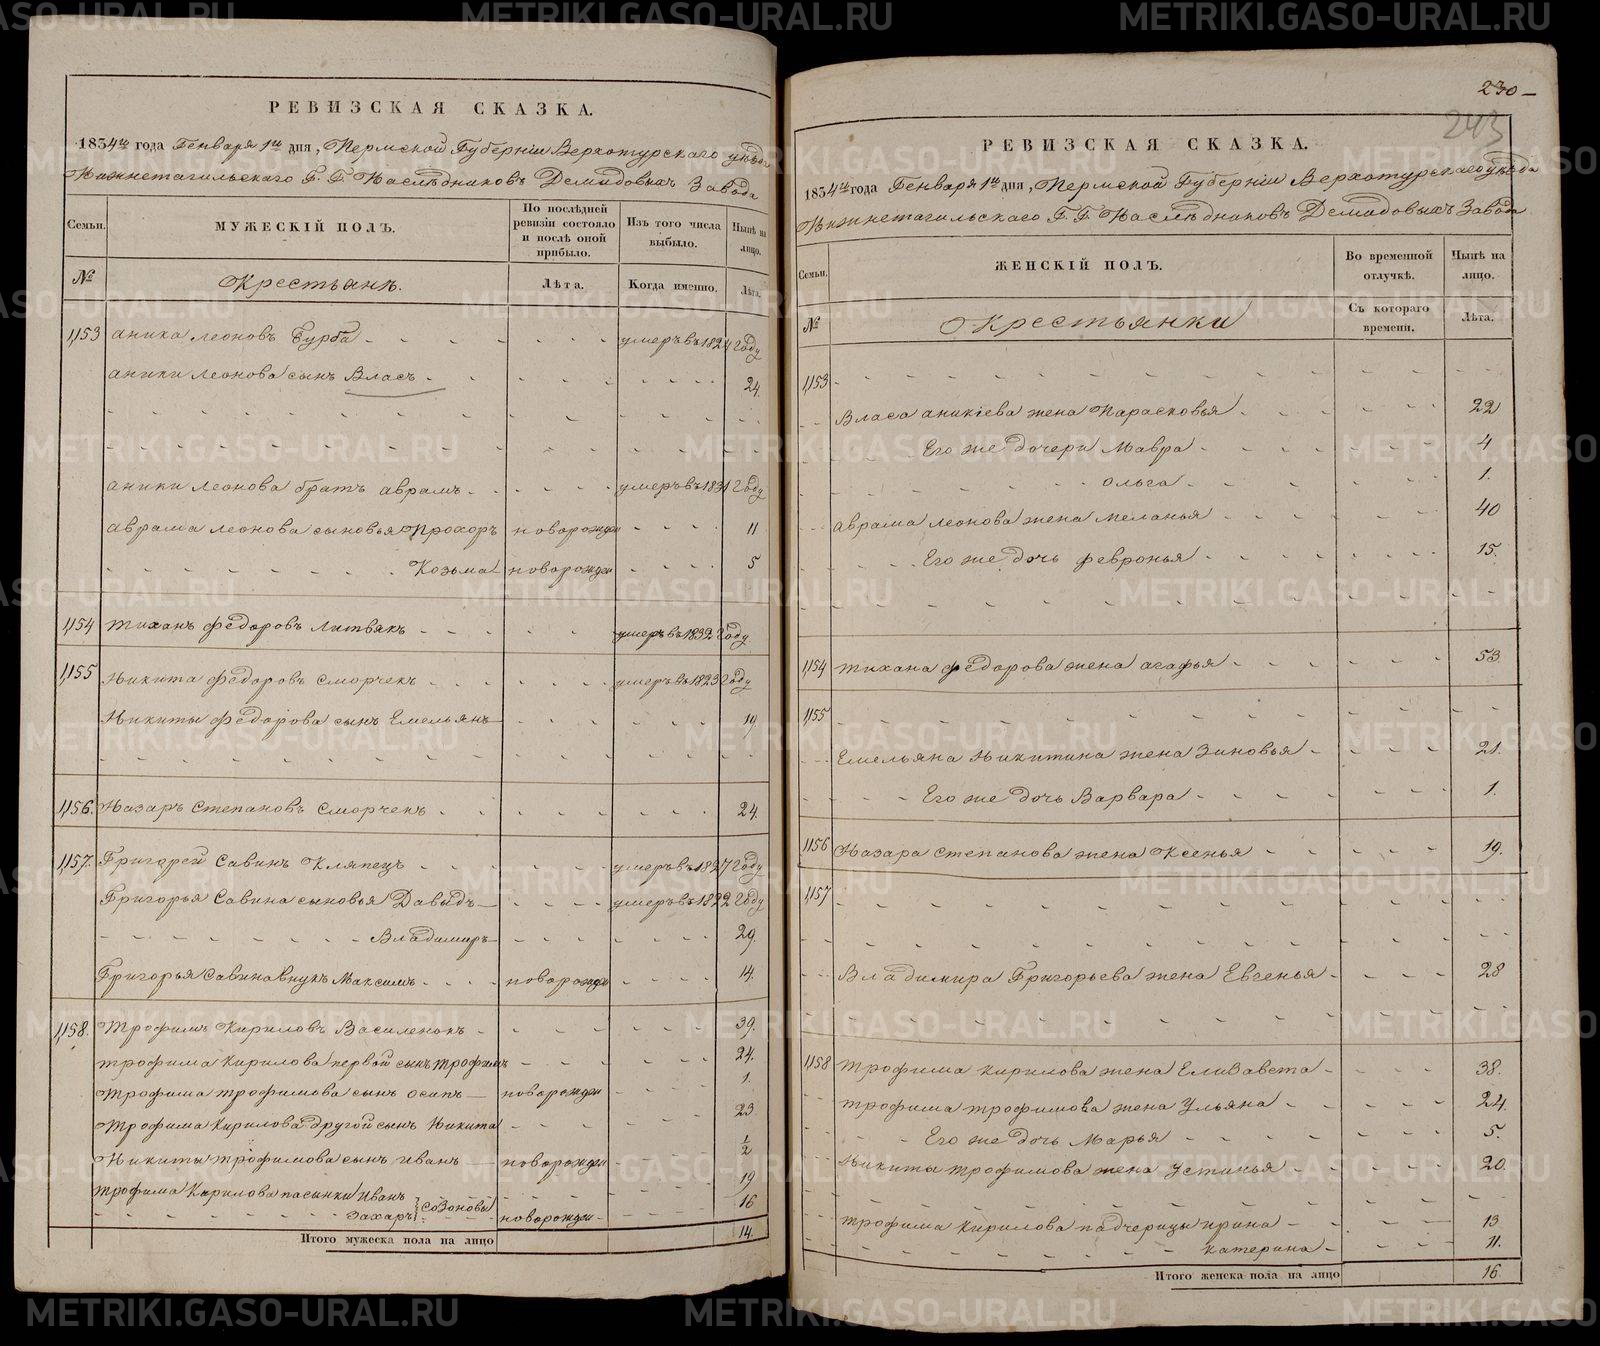 РЕВИЗСКАЯ СКАЗКА.
1834го года Генваря 1го дня, Пермской Губерніи Верхотурскаго уѣзда
Нижнетагильскаго Г. Г. Наслѣдниковъ Демидовыхъ Завода
Семьи. МУЖЕСКІЙ ПОЛЪ. По послѣдней ревизіи состояло и послѣ оной прибыло. Изъ того числа выбыло. Нынѣ на лицо.
№ Крестьянъ. Лѣта. Когда именно. Лѣта.
1,153 аника леоновъ Гурба умеръ въ 1824 году
аники леонова сынъ Власъ 24.
аники леонова братъ аврамъ умеръ въ 1831 году
аврама леонова сыновья Прохоръ новорожден 11
Козьма новорожден 5
1,154 тиханъ федоровъ Литвякъ умеръ въ 1832 году
1,155 Никита федоровъ сморчекъ умеръ въ 1823 году
Никиты федорова сынъ Емельянъ 19
1,156. Назаръ степановъ сморчекъ 24.
1,157. Григорей Савинъ Кляпецъ умеръ въ 1827 году
Григорья Савина сыновья Давыдъ умеръ въ 1822 году
Владимиръ 29.
Григорья савина внукъ Максимъ новорожден 14.
1,158. трофимъ Кириловъ Василенокъ 39.
трофима Кирилова первой сынъ трофимъ 24.
трофима трофимова сынъ осипъ новорожден 1.
трофима Кирилова другой сынъ Никита 23
Никиты трофимова сынъ иванъ новорожден 1/2
трофима Кирилова пасынки Иванъ 19
Захаръ созоновы новорожден 16
Итого мужеска пола на лицо 14.
230
243
РЕВИЗСКАЯ СКАЗКА.
1834го года Генваря 1го дня, Пермской Губерніи Верхотурскаго уѣзда
Нижнетагильскаго Г. Г. Наслѣдниковъ Демидовыхъ Завода
Семьи. ЖЕНСКІЙ ПОЛЪ. Во временной отлучкѣ. Нынѣ на лицо.
№ Крестьянки Съ котораго времени. Лѣта.
1,153
Власа аникіева жена Парасковья 22
Его же дочери Мавра 4
ольга 1.
аврама леонова жена меланья 40
Его же дочь февронья 15.
1,154 тихана федорова жена агафья 53.
1,155
Емельяна Никитина жена Зиновья 21.
Его же дочь Варвара 1.
1,156 Назара степанова жена Ксенья 19.
1,157
Владимира Григорьева жена Евгенья 28
1,158 трофима кирилова жена Елизавета 38.
трофима трофимова жена Ульяна 24.
Его же дочь Марья 5.
Никиты трофимова жена устинья 20.
трофима кирилова падчерицы ирина 13
катерина 11.
Итого женска пола на лицо 16
METRIKI.GASO-URAL.RU